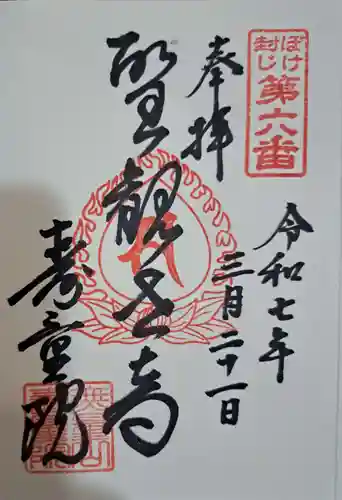 ぼけ封じ
第六番
奉拝
令和七年
三月二十一日
聖観世音
寿量院